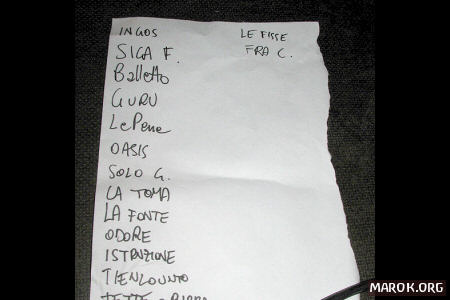 INGOS
SIGA F.
Balletto
GURU
LePene
OASIS
SOLO G.
LA TOMA
LA FONTE
ODORE
ISTRUZIONE
TIENLOUNTO
TETTE
LE FISSE
FRA C.
MAROK.ORG